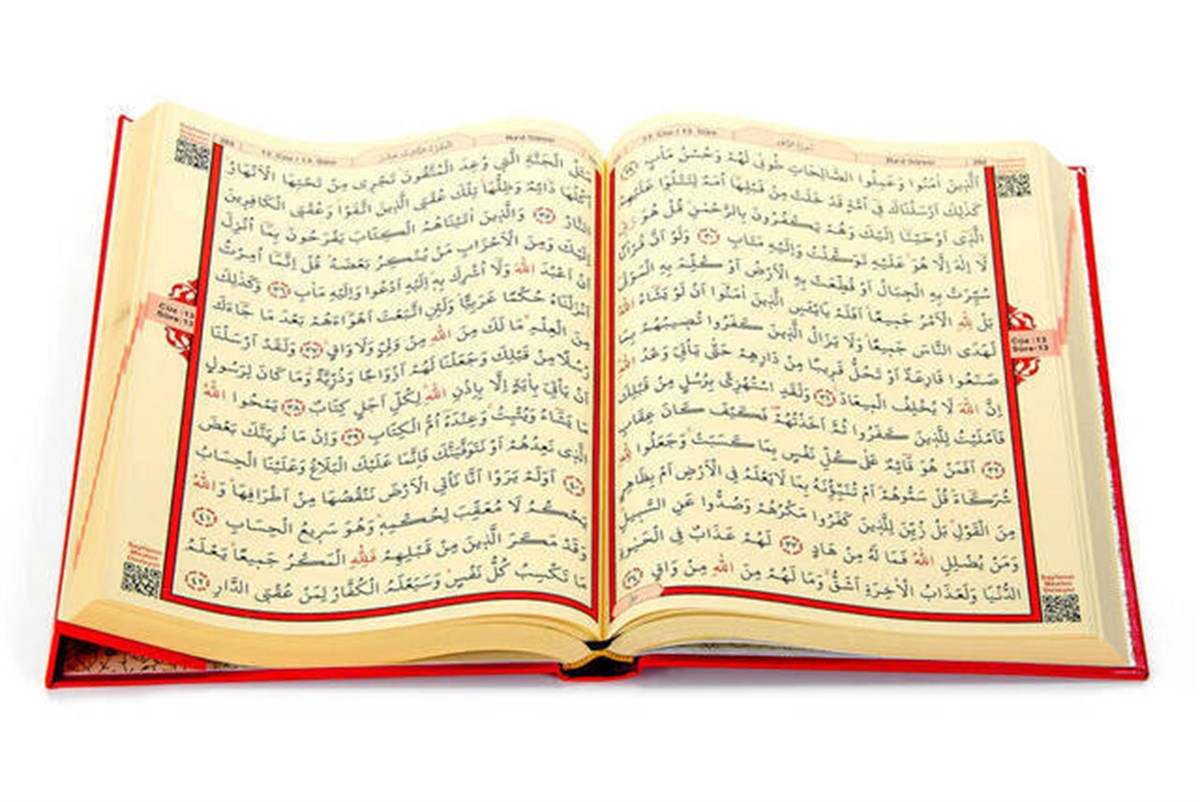 13. Cüz / 13. Sûre سُورَةُ الرَّعْدِ Ra'd Sûresi 252
اَلَّذِينَ اٰمَنُوا وَعَمِلُوا الصَّالِحَاتِ طُوبٰى لَهُمْ وَحُسْنُ مَاٰبٍ ﴿٢٩﴾
كَذٰلِكَ اَرْسَلْنَاكَ فِى اُمَّةٍ قَدْ خَلَتْ مِنْ قَبْلِهَا اُمَمٌ لِتَتْلُوَا عَلَيْهِمُ
الَّذِى اَوْحَيْنَا اِلَيْكَ وَهُمْ يَكْفُرُونَ بِالرَّحْمٰنِ قُلْ هُوَ رَبِّى
لَا اِلٰهَ اِلَّا هُوَ عَلَيْهِ تَوَكَّلْتُ وَاِلَيْهِ مَتَابِ ﴿٣٠﴾ وَلَوْ اَنَّ قُرْاٰنًا
سُيِّرَتْ بِهِ الْجِبَالُ اَوْ قُطِّعَتْ بِهِ الْاَرْضُ اَوْ كُلِّمَ بِهِ الْمَوْتٰى
بَلْ لِلّٰهِ الْاَمْرُ جَمِيعًا اَفَلَمْ يَايْـَٔسِ الَّذِينَ اٰمَنُوا اَنْ لَوْ يَشَاءُ اللّٰهُ
لَهَدَى النَّاسَ جَمِيعًا وَلَا يَزَالُ الَّذِينَ كَفَرُوا تُصِيبُهُمْ بِمَا
صَنَعُوا قَارِعَةٌ اَوْ تَحُلُّ قَرِيبًا مِنْ دَارِهِمْ حَتّٰى يَأْتِىَ وَعْدُ اللّٰهِ
اِنَّ اللّٰهَ لَا يُخْلِفُ الْمِيعَادَ ﴿٣١﴾ وَلَقَدِ اسْتُهْزِئَ بِرُسُلٍ مِنْ قَبْلِكَ
فَاَمْلَيْتُ لِلَّذِينَ كَفَرُوا ثُمَّ اَخَذْتُهُمْ فَكَيْفَ كَانَ عِقَابِ
﴿٣٢﴾ اَفَمَنْ هُوَ قَائِمٌ عَلٰى كُلِّ نَفْسٍ بِمَا كَسَبَتْ وَجَعَلُوا لِلّٰهِ
شُرَكَاءَ قُلْ سَمُّوهُمْ اَمْ تُنَبِّؤُنَهُ بِمَا لَا يَعْلَمُ فِى الْاَرْضِ اَمْ بِظَاهِرٍ
مِنَ الْقَوْلِ بَلْ زُيِّنَ لِلَّذِينَ كَفَرُوا مَكْرُهُمْ وَصُدُّوا عَنِ السَّبِيلِ
وَمَنْ يُضْلِلِ اللّٰهُ فَمَا لَهُ مِنْ هَادٍ ﴿٣٣﴾ لَهُمْ عَذَابٌ فِى الْحَيٰوةِ
الدُّنْيَا وَلَعَذَابُ الْاٰخِرَةِ اَشَقُّ وَمَا لَهُمْ مِنَ اللّٰهِ مِنْ وَاقٍ ﴿٣٤﴾
Cüz :13
Sûre:13
253 13. Cüz / 13. Sûre Ra'd Sûresi
مَثَلُ الْجَنَّةِ الَّتِى وُعِدَ الْمُتَّقُونَ تَجْرِى مِنْ تَحْتِهَا الْاَنْهَارُ
اُكُلُهَا دَائِمٌ وَظِلُّهَا تِلْكَ عُقْبَى الَّذِينَ اتَّقَوْا وَعُقْبَى الْكَافِرِينَ
النَّارُ ﴿٣٥﴾ وَالَّذِينَ اٰتَيْنَاهُمُ الْكِتَابَ يَفْرَحُونَ بِمَا اُنْزِلَ
اِلَيْكَ وَمِنَ الْاَحْزَابِ مَنْ يُنْكِرُ بَعْضَهُ قُلْ اِنَّمَا اُمِرْتُ
اَنْ اَعْبُدَ اللّٰهَ وَلَا اُشْرِكَ بِهِ اِلَيْهِ اَدْعُوا وَاِلَيْهِ مَاٰبِ ﴿٣٦﴾ وَكَذٰلِكَ
اَنْزَلْنَاهُ حُكْمًا عَرَبِيًّا وَلَئِنِ اتَّبَعْتَ اَهْوَاءَهُمْ بَعْدَ مَا جَاءَكَ
مِنَ الْعِلْمِ مَا لَكَ مِنَ اللّٰهِ مِنْ وَلِىٍّ وَلَا وَاقٍ ﴿٣٧﴾ وَلَقَدْ اَرْسَلْنَا
رُسُلًا مِنْ قَبْلِكَ وَجَعَلْنَا لَهُمْ اَزْوَاجًا وَذُرِّيَّةً وَمَا كَانَ لِرَسُولٍ
اَنْ يَأْتِىَ بِاٰيَةٍ اِلَّا بِاِذْنِ اللّٰهِ لِكُلِّ اَجَلٍ كِتَابٌ ﴿٣٨﴾ يَمْحُوا اللّٰهُ
مَا يَشَاءُ وَيُثْبِتُ وَعِنْدَهُ اُمُّ الْكِتَابِ ﴿٣٩﴾ وَاِنْ مَا نُرِيَنَّكَ بَعْضَ
الَّذِى نَعِدُهُمْ اَوْ نَتَوَفَّيَنَّكَ فَاِنَّمَا عَلَيْكَ الْبَلَاغُ وَعَلَيْنَا الْحِسَابُ
﴿٤٠﴾ اَوَلَمْ يَرَوْا اَنَّا نَأْتِى الْاَرْضَ نَنْقُصُهَا مِنْ اَطْرَافِهَا وَاللّٰهُ
يَحْكُمُ لَا مُعَقِّبَ لِحُكْمِهِ وَهُوَ سَرِيعُ الْحِسَابِ ﴿٤١﴾
وَقَدْ مَكَرَ الَّذِينَ مِنْ قَبْلِهِمْ فَلِلّٰهِ الْمَكْرُ جَمِيعًا يَعْلَمُ
مَا تَكْسِبُ كُلُّ نَفْسٍ وَسَيَعْلَمُ الْكُفَّارُ لِمَنْ عُقْبَى الدَّارِ ﴿٤٢﴾
Cüz :13
Sûre:13